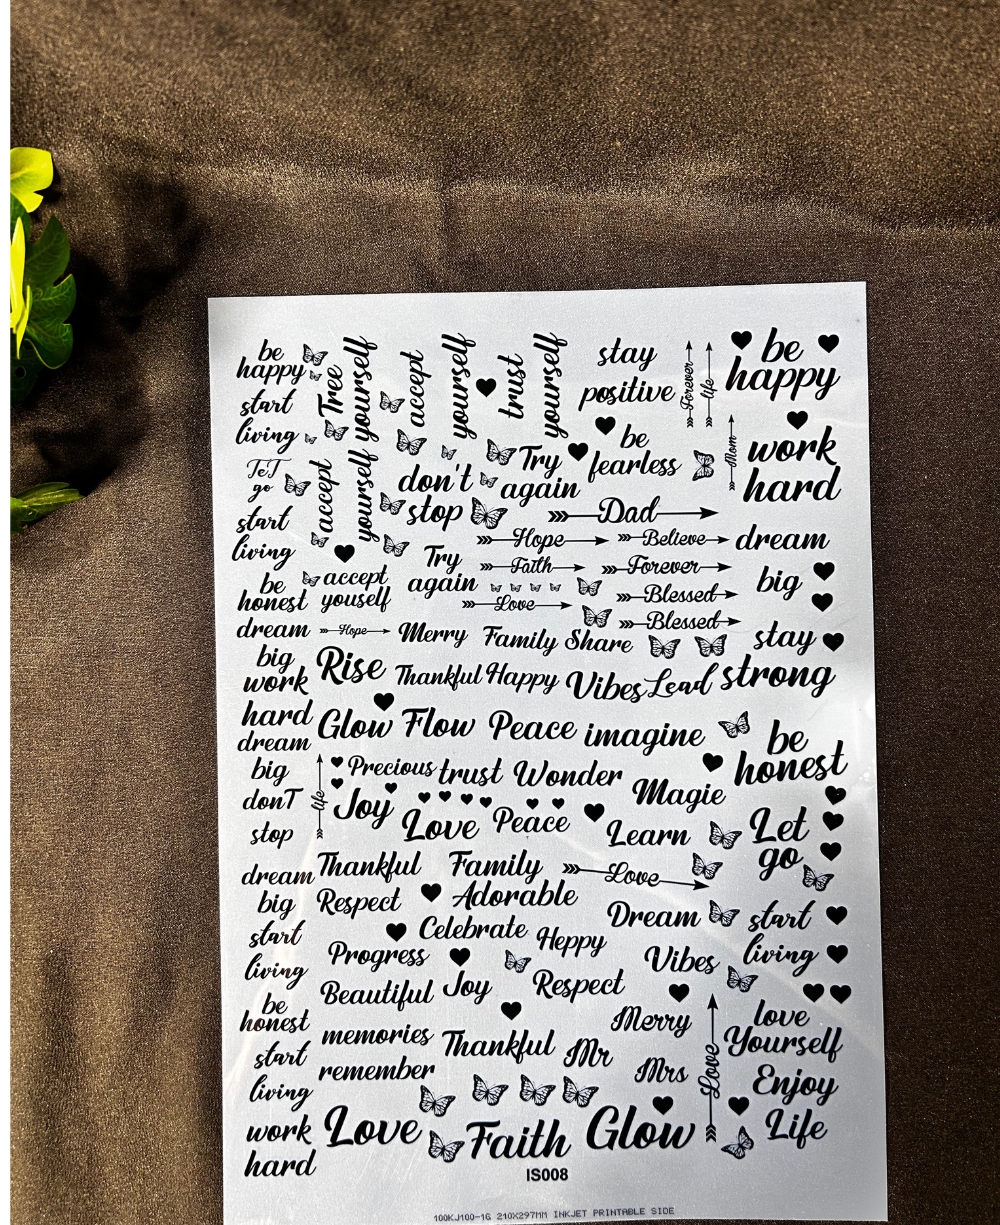 be
happy
start
living
TeT
go
start
living
be
honest
dream
big
work
hard
dream
big
donT
stop
dream
big
start
living
be
honest
start
living
work
hard
Tree
yourself
accept
yourself
accept
yourself
trust
yourself
accept
youself
don't
stop
Try
again
Try
again
stay
positive
be
fearless
Forever
life
Mom
be
happy
work
hard
Dad
Hope
Believe
Faith
Forever
Love
Blessed
Blessed
dream
big
stay
strong
Hope
Merry Family Share
Rise Thankful Happy Vibes Lead
Glow Flow Peace imagine
be
honest
life
Precious trust Wonder
Magie
Joy Love Peace
Learn
Let
go
Thankful Family Love
Respect Adorable
Dream
start
living
Celebrate Heppy
Progress
Vibes
Beautiful Joy Respect
memories
remember
Thankful Mr
Merry
Mrs
Love
love
Yourself
Enjoy
Life
Love Faith Glow
IS008
100KJ100-1G 210X297MM INKJET PRINTABLE SIDE